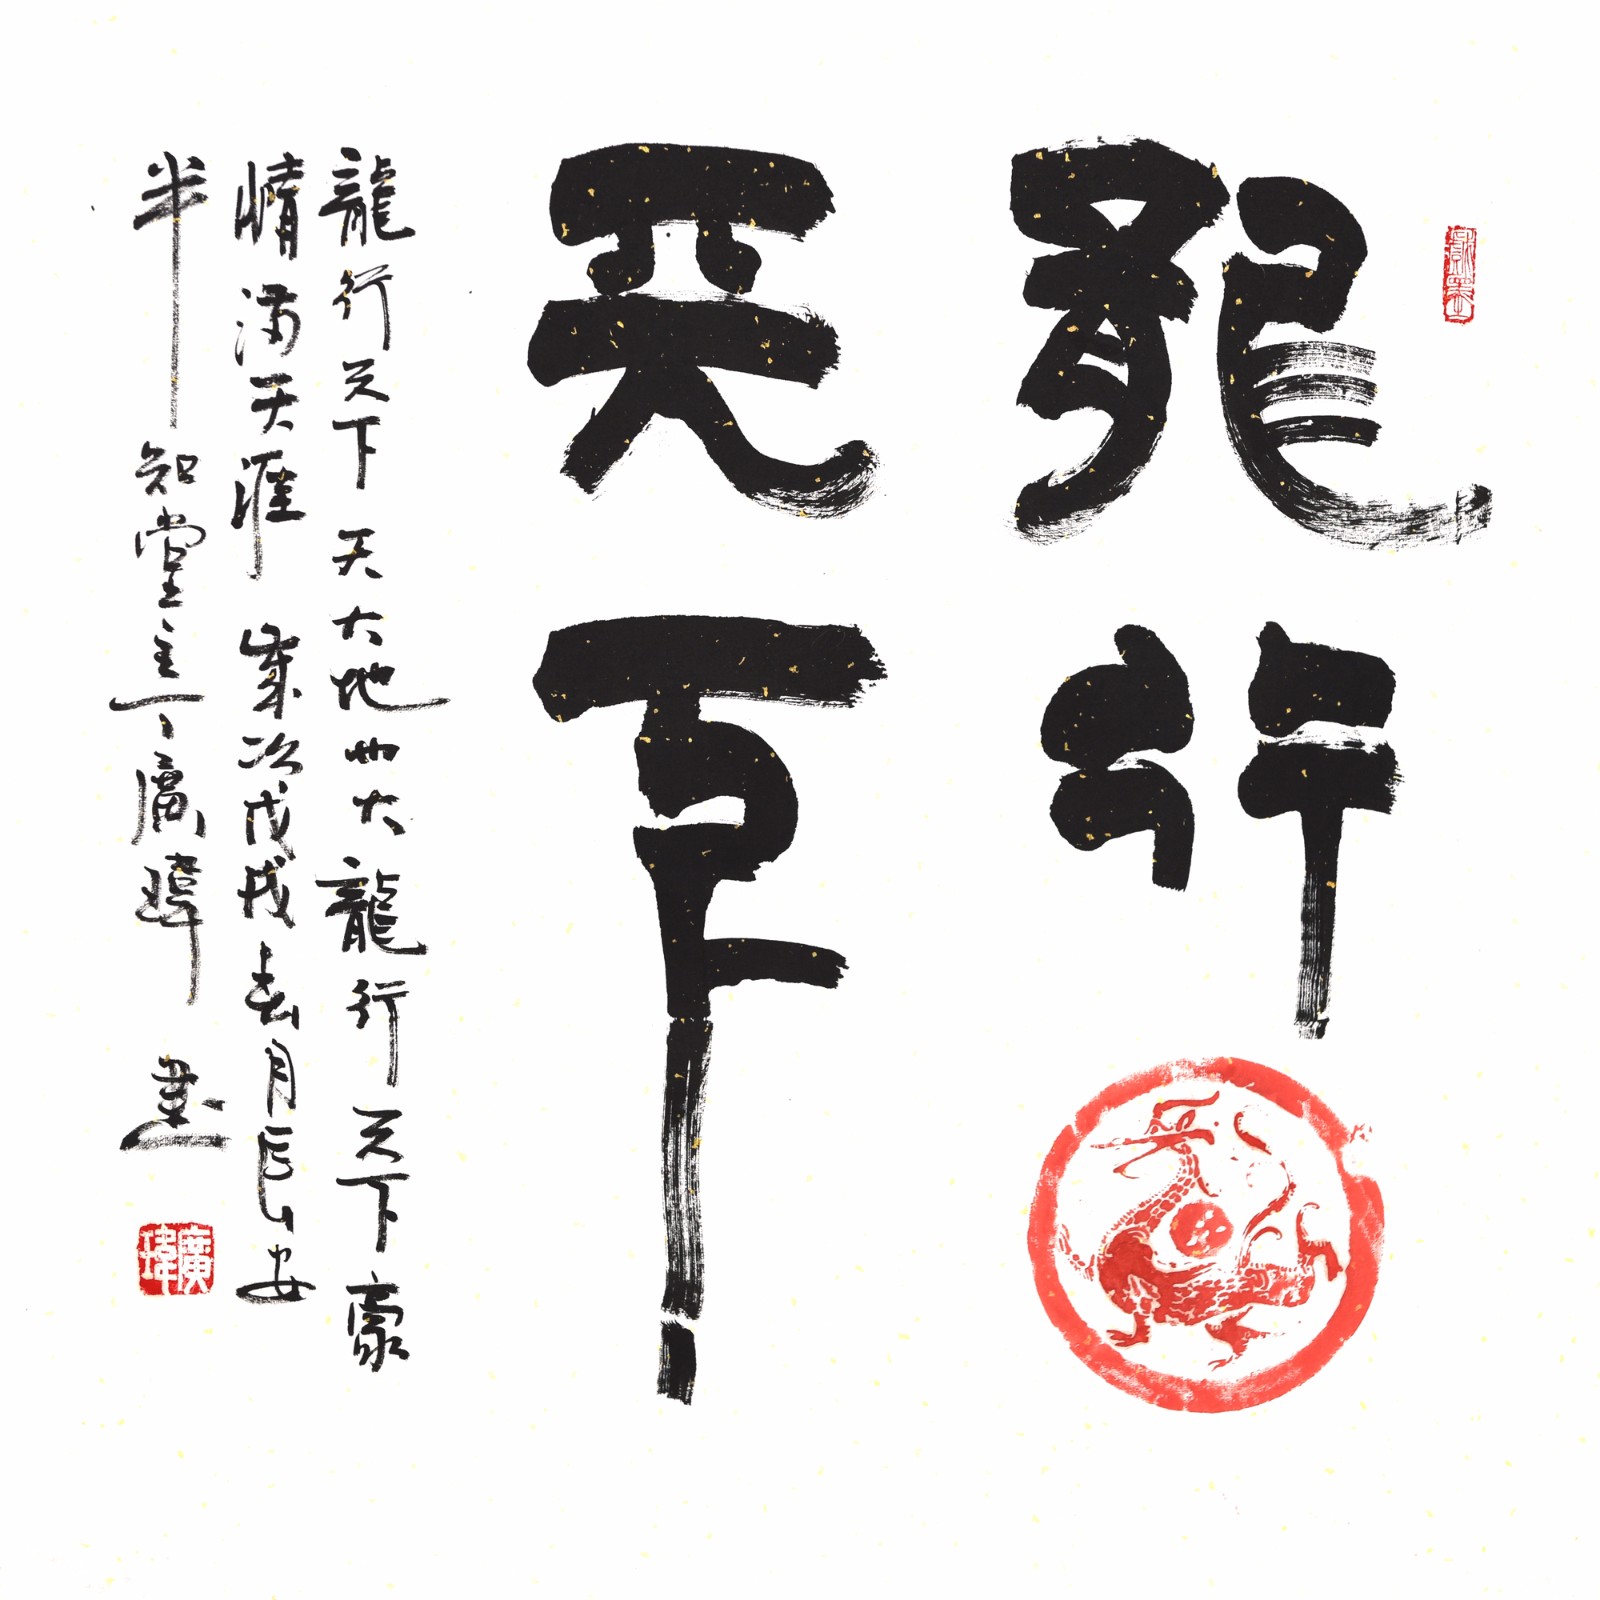 龍行
天下
龍行天下天大地也大龍行天下豪
情滿天涯歲次戊戌春月長安
半知堂主丁廣瑋書
廣瑋